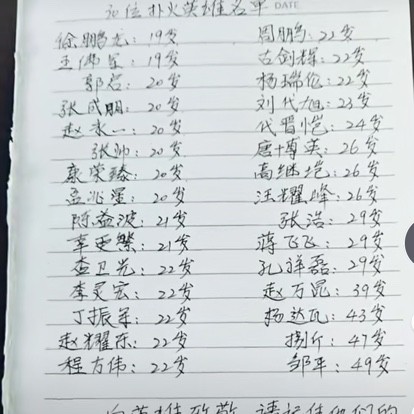 扑火英雄名单 DATE
徐鹏龙：19岁 周鹏：22岁
王佛军：19岁 古剑辉：22岁
郭启：20岁 杨瑞伦：22岁
张成朋：20岁 刘代旭：23岁
赵永一：20岁 代晋恺：24岁
张帅：20岁 唐博英：26岁
康荣臻：20岁 高继垲：26岁
孟兆星：20岁 汪耀峰：26岁
陈益波：21岁 张浩：29岁
幸更繁：21岁 蒋飞飞：29岁
查卫光：22岁 孔祥磊：29岁
李灵宏：22岁 赵万昆：39岁
丁振军：22岁 杨达瓦：43岁
赵耀东：22岁 捌斤：47岁
程方伟：22岁 邹平：49岁
向英雄致敬 请记住他们的